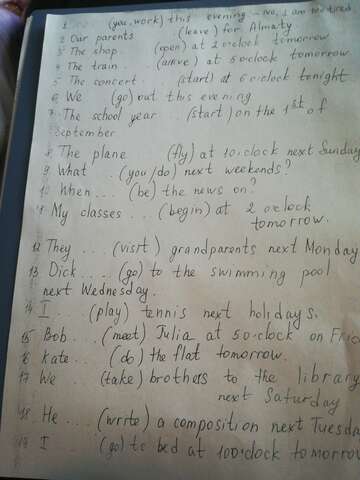 1 ... (you, work) this evening - No, I am not tired
2 Our parents ... (leave) for Almaty
3 The shop... (open) at 2 o'clock tomorrow
4 The train ... (arrive) at 5 o'clock tomorrow.
5 The concert ... (start) at 6 o'clock tonight
6 We ... (go) out this evening
7 The school year ... (start) on the 1st of
September
8 The plane ... (fly) at 10 o'clock next Sunday
9 What ... (you/do) next weekends?
10 When... (be) the news on?
11 My classes ... (begin) at 2 o'clock
tomorrow.
12 They .... (visit) grandparents next Monday
13 Dick .... (go) to the swimming pool
next Wednesday.
14 I .... (play) tennis next holidays.
15 Bob .... (meet) Julia at 5 o'clock on
16 Kate .... (do) the flat tomorrow.
17 We ... (take) brothers to the library
next Saturday
18 He .... (write) a composition next
19 I ... (go) to bed at 10 o'clock